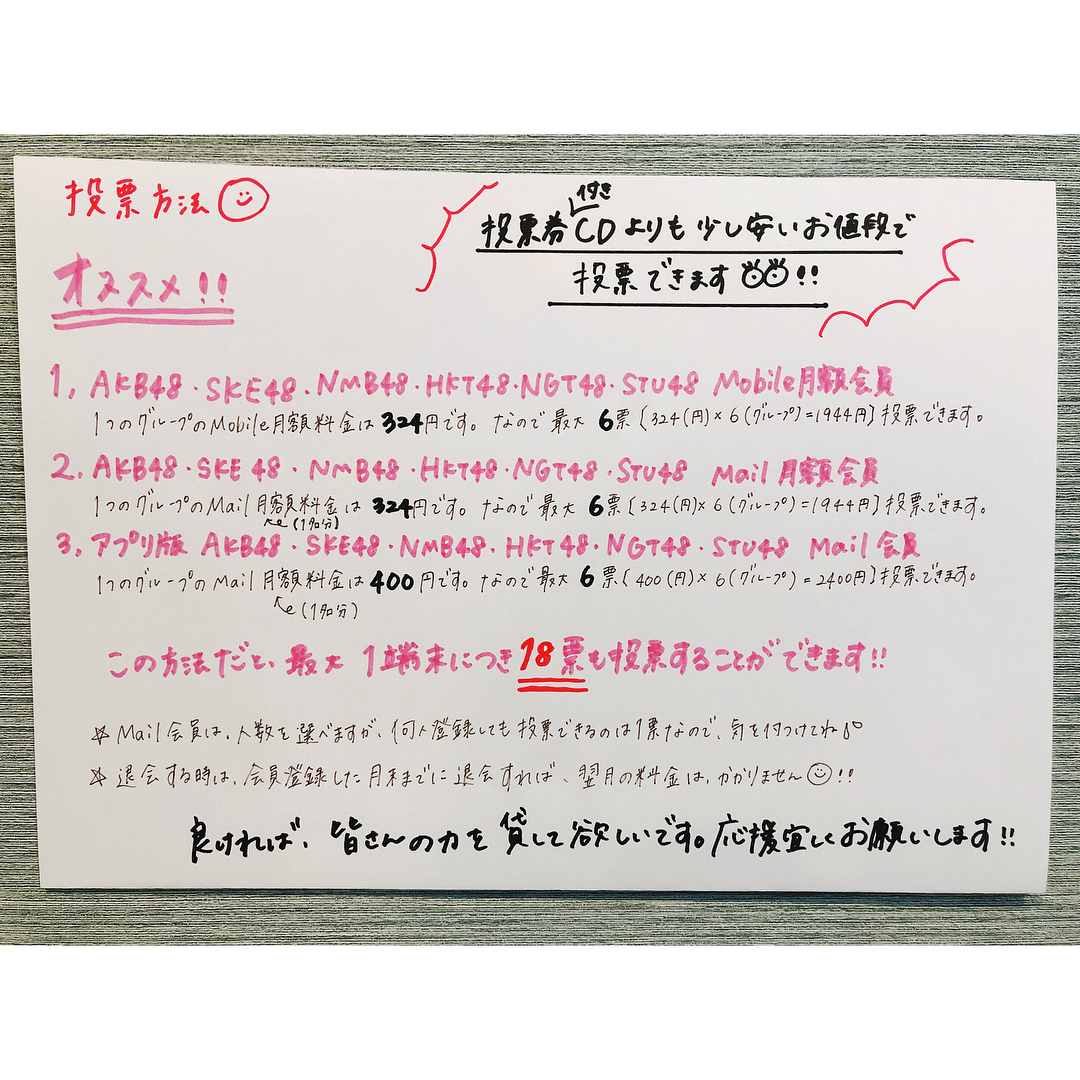 投票方法
オススメ!!
投票券付きCDよりも少し安いお値段で
投票できます!!
1, AKB48・SKE48・NMB48・HKT48・NGT48・STU48 Mobile月額会員
1つのグループのMobile月額料金は324円です。なので最大6票[324(円)×6(グループ)=1944円]投票できます。
2. AKB48・SKE48・NMB48・HKT48・NGT48・STU48 Mail月額会員
1つのグループのMail月額料金は324円です。なので最大6票[324(円)×6(グループ)=1944円]投票できます。
(1名分)
3. アプリ版 AKB48・SKE48・NMB48・HKT48・NGT48・STU48 Mail会員
1つのグループのMail月額料金は400円です。なので最大6票[400(円)×6(グループ)=2400円]投票できます。
(1名分)
この方法だと、最大1端末につき18票も投票することができます!!
☆Mail会員は、人数を選べますが、何人登録しても投票できるのは1票なので、気を付つけてね♪
☆退会する時は、会員登録した月末までに退会すれば、翌月の料金は、かかりません!!
良ければ、皆さんの力を貸して欲しいです。応援宜しくお願いします!!